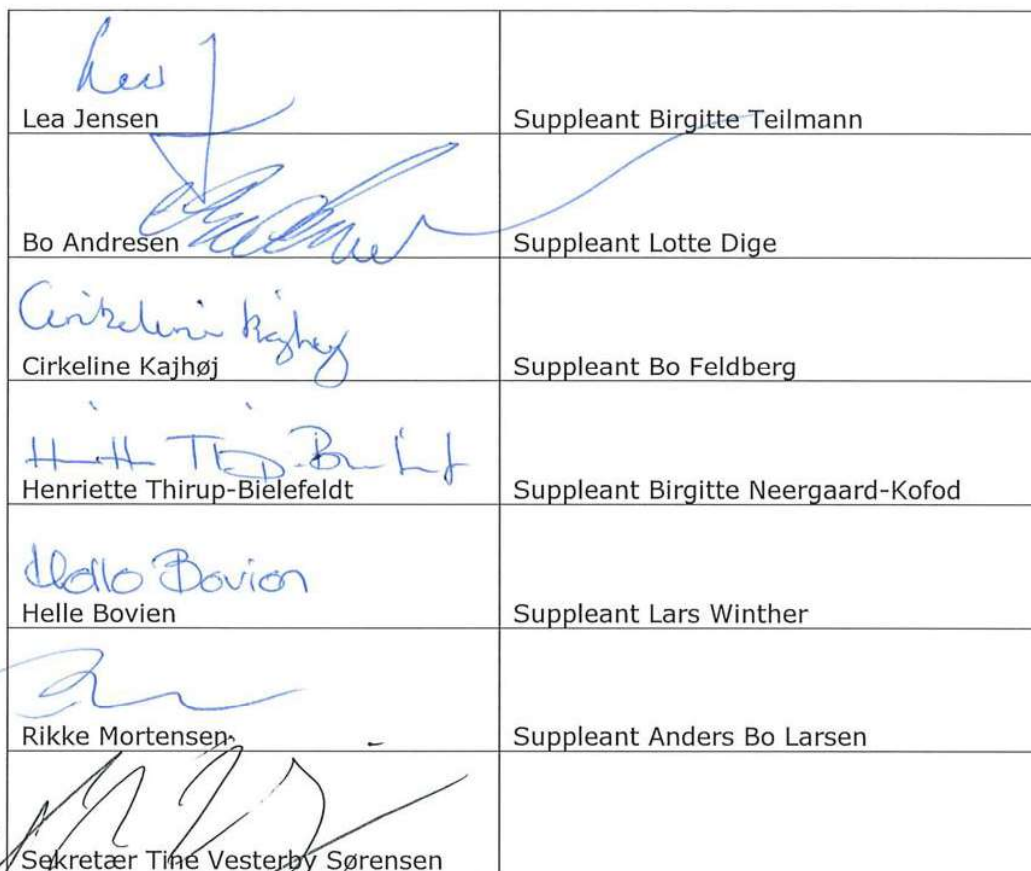 Lea J
Lea Jensen
Suppleant Birgitte Teilmann
Bo Andresen
Suppleant Lotte Dige
Cirkeline Kajhøj
Cirkeline Kajhøj
Suppleant Bo Feldberg
Henriette Thirup-Bielefeldt
Suppleant Birgitte Neergaard-Kofod
Helle Bovien
Helle Bovien
Suppleant Lars Winther
Rikke Mortensen
Suppleant Anders Bo Larsen
Sekretær Tine Vesterby Sørensen